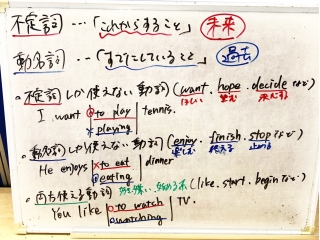 不定詞 …「これからすること」 未来
動名詞 …「すでにしていること」 過去
○不定詞しか使えない動詞 (want、hope、decide など)
ほしい 望む 決心する
I want ○to play tennis.
×playing
○動名詞しか使えない動詞 (enjoy、finish、stop など)
楽しむ 終える 止める
He enjoys ×to eat dinner
○eating
○両方使える動詞 (like、start、begin など)
You like ○to watch TV.
○watching